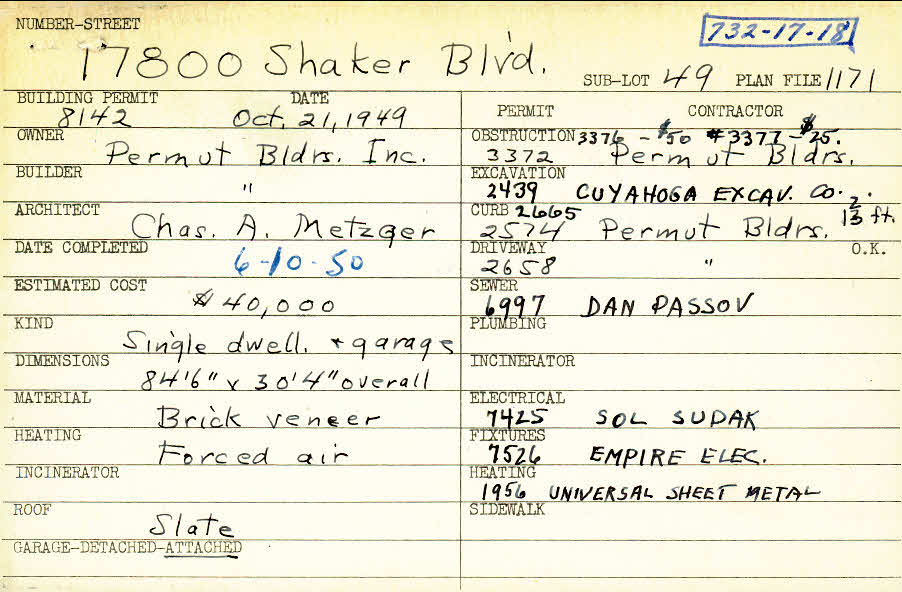 NUMBER-STREET
732-17-18
17800 Shaker Blvd.
SUB-LOT 49 PLAN FILE 1171
BUILDING PERMIT DATE
8142 Oct. 21, 1949
OWNER
Permut Bldrs. Inc.
BUILDER
"
ARCHITECT
Chas. A. Metzger
DATE COMPLETED
6-10-50
ESTIMATED COST
$40,000
KIND
Single dwell. + garage
DIMENSIONS
84'6" x 30'4" overall
MATERIAL
Brick veneer
HEATING
Forced air
INCINERATOR
ROOF
Slate
GARAGE-DETACHED-ATTACHED
PERMIT CONTRACTOR
OBSTRUCTION 3376 - $50 #3377 - $25.
3372 Permut Bldrs.
EXCAVATION
2439 CUYAHOGA EXCAV. CO.
CURB 2665
2574 Permut Bldrs. 13 2/ ft.
DRIVEWAY O.K.
2658 "
SEWER
6997 DAN PASSOV
PLUMBING
INCINERATOR
ELECTRICAL
7425 SOL SUDAK
FIXTURES
7526 EMPIRE ELEC.
HEATING
1956 UNIVERSAL SHEET METAL
SIDEWALK